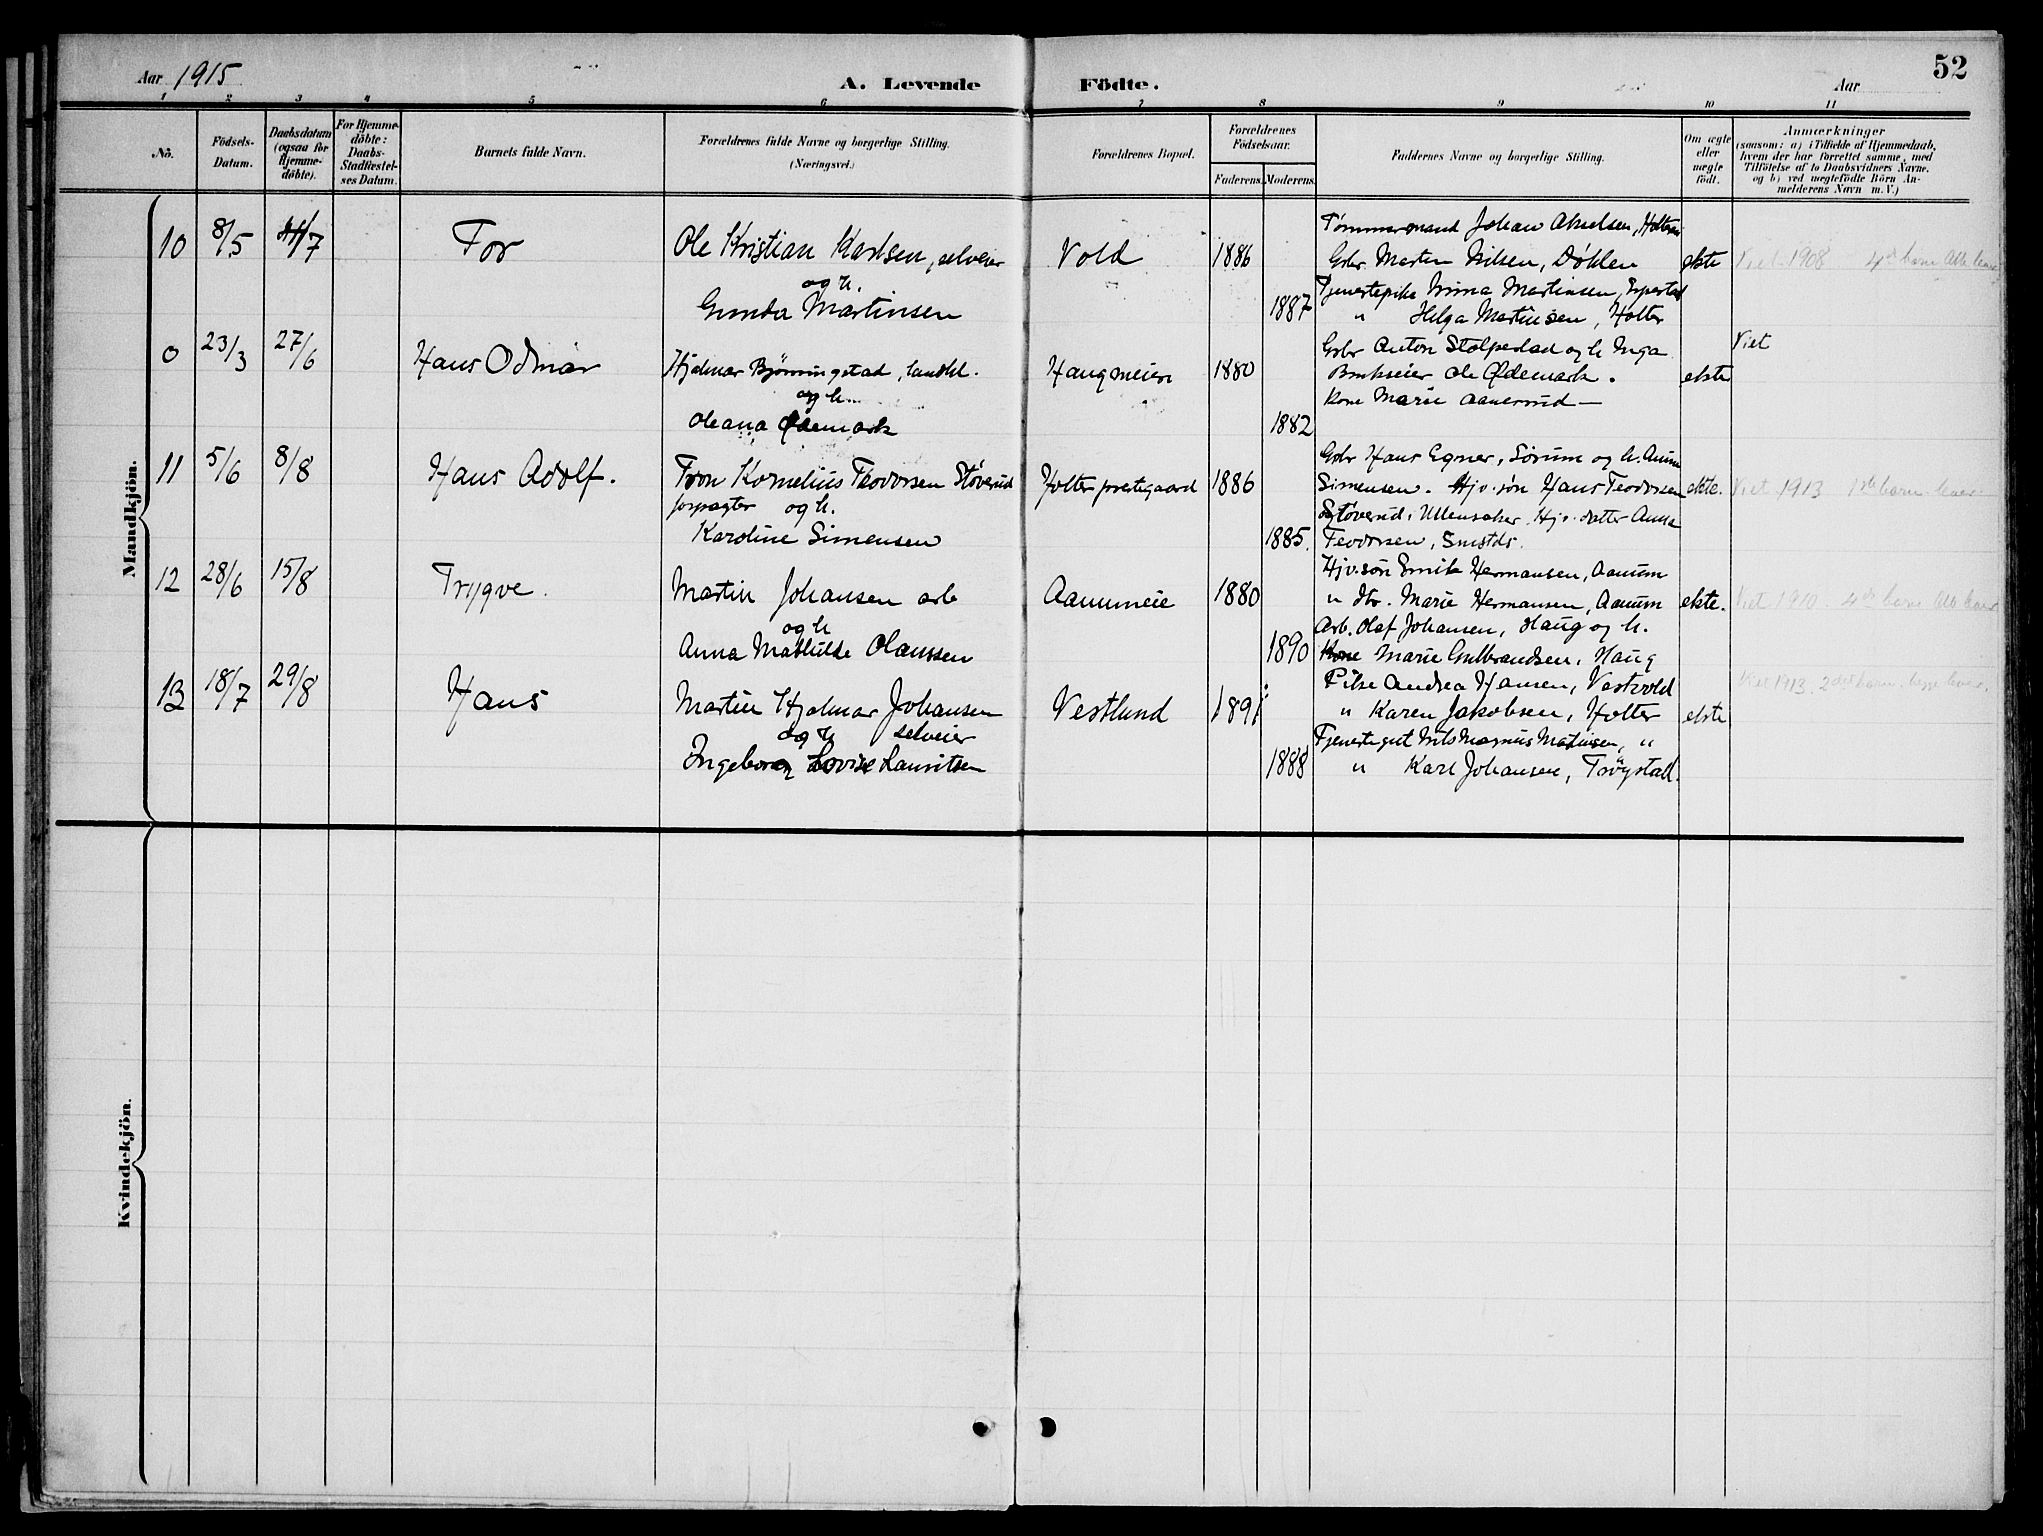 Aar 1915
A. Levende Födte.
Aar
52
1 2 3 4 5 6 7 8 9 10 11
No.
Födsels-Datum.
Daabsdatum (ogsaa for Hjemme-döbte).
For Hjemme-döbte: Daabs-Stadfæstel-ses Datum.
Barnets fulde Navn.
Forældrenes fulde Navne og borgerlige Stilling. (Næringsvei.)
Forældrenes Bopæl.
Forældrenes Födselsaar.
Faderens. Moderens.
Faddernes Navne og borgerlige Stilling.
Om ægte eller uægte födt.
Anmærkninger
(saasom: a) i Tilfælde af Hjemmedaab,
hvem der har forrettet samme, med
Tilföielse af to Daabsvidners Navne,
og b) ved uægtefödte Börn An-
melderens Navn m. V.)
Mandkjön.
10 8/5 /7 Tor
Ole Kristian Karlsen, selveier
og h.
Gunda Martinsen
Vold 1886
1887
Tømmermand Johan
Gbr. Martin Nilsen, Døhlen
Tjenestepike Martinsen,
" Helga Martinsen, Holter
ekte
Viet 1908 4de barn Alle lever
0 23/3 27/6 Hans Odmar
Hjalmar Bjønningstad, landhl.
og h.
Oleana Ødemark
Haugmeien 1880
1882
Gbr Anton Stolpestad og h. Inga
Brukseier Ole Ødemark.
Kone Marie Aanerud—
ekte
Viet
11 5/6 8/8 Hans Adolf.
Tron Kornelius Teodorsen Støverud
forpagter og h.
Karoline Simensen
Holter prestegaard 1886
1885.
Gbr Hans Egner, Sørum og h. Anna
Simensen. Hjv. søn Hans Teodorsen
Støverud, Ullensaker, Hjv. datter Anna
Teodorsen, Smstds.
ekte.
Viet 1913 1ste barn lever
12 28/6 15/8 Trygve.
Martin Johansen arb
og h
Anna Mathilde Olaussen
Aanumeie 1880
1890
Hjv. søn Emil Hermansen, Aanum
" dtr. Marie Hermansen, Aanum
Arb. Olaf Johansen, Haug og h.
Kone Marie Gulbrandsen, Haug
ekte.
Viet 1910. 4de barn Alle lever
13 18/7 29/8 Hans
Martin Hjalmar Johansen
og h selveier
Ingeborg Lovise Lauritsen
Vestlund 1891
1888
Pike Andrea Hansen, Vestvold
" Karen Jakobsen, Holter
Tjenestegut Nils Magnus Martinsen, "
" Karl Johansen, Trøgstad.
ekte
Viet 1913. 2det barn. begge lever.
Kvindekjön.